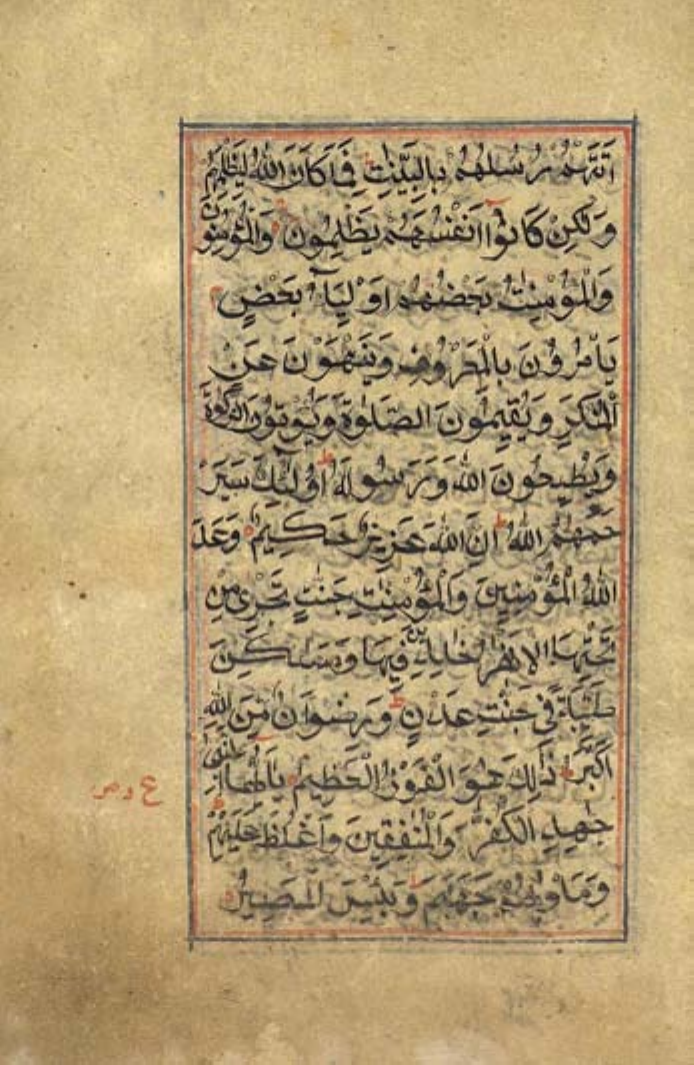 اَتَتْهُمْ رُسُلُهُمْ بِالْبَيِّنٰتِ فَمَا كَانَ اللّٰهُ لِيَظْلِمَهُمْ
وَلٰكِنْ كَانُوْا اَنْفُسَهُمْ يَظْلِمُوْنَ وَالْمُؤْمِنُوْنَ
وَالْمُؤْمِنٰتُ بَعْضُهُمْ اَوْلِيَآءُ بَعْضٍ
يَأْمُرُوْنَ بِالْمَعْرُوْفِ وَيَنْهَوْنَ عَنِ
الْمُنْكَرِ وَيُقِيْمُوْنَ الصَّلٰوةَ وَيُؤْتُوْنَ الزَّكٰوةَ
وَيُطِيْعُوْنَ اللّٰهَ وَرَسُوْلَهُ اُولٰٓئِكَ سَيَرْ
حَمُهُمُ اللّٰهُ اِنَّ اللّٰهَ عَزِيْزٌ حَكِيْمٌ وَعَدَ
اللّٰهُ الْمُؤْمِنِيْنَ وَالْمُؤْمِنٰتِ جَنّٰتٍ تَجْرِيْ مِنْ
تَحْتِهَا الْاَنْهٰرُ خٰلِدِيْنَ فِيْهَا وَمَسٰكِنَ
طَيِّبَةً فِيْ جَنّٰتِ عَدْنٍ وَرِضْوَانٌ مِّنَ اللّٰهِ
اَكْبَرُ ذٰلِكَ هُوَ الْفَوْزُ الْعَظِيْمُ يٰاَيُّهَا النَّبِيُّ
جَاهِدِ الْكُفَّارَ وَالْمُنٰفِقِيْنَ وَاغْلُظْ عَلَيْهِمْ
وَمَأْوٰيهُمْ جَهَنَّمُ وَبِئْسَ الْمَصِيْرُ